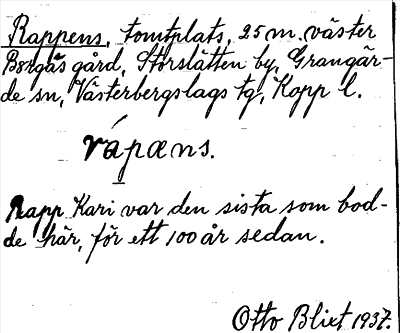 Rappens, tomtplats, 25 m. väster
Borgås gård, Storslätten by, Grangär-
de sn, Västerbergslags tg, Kopp l.
rápæns.
Rapp Kari var den sista som bod-
de här, för ett 100 år sedan.
Otto Blixt 1937.